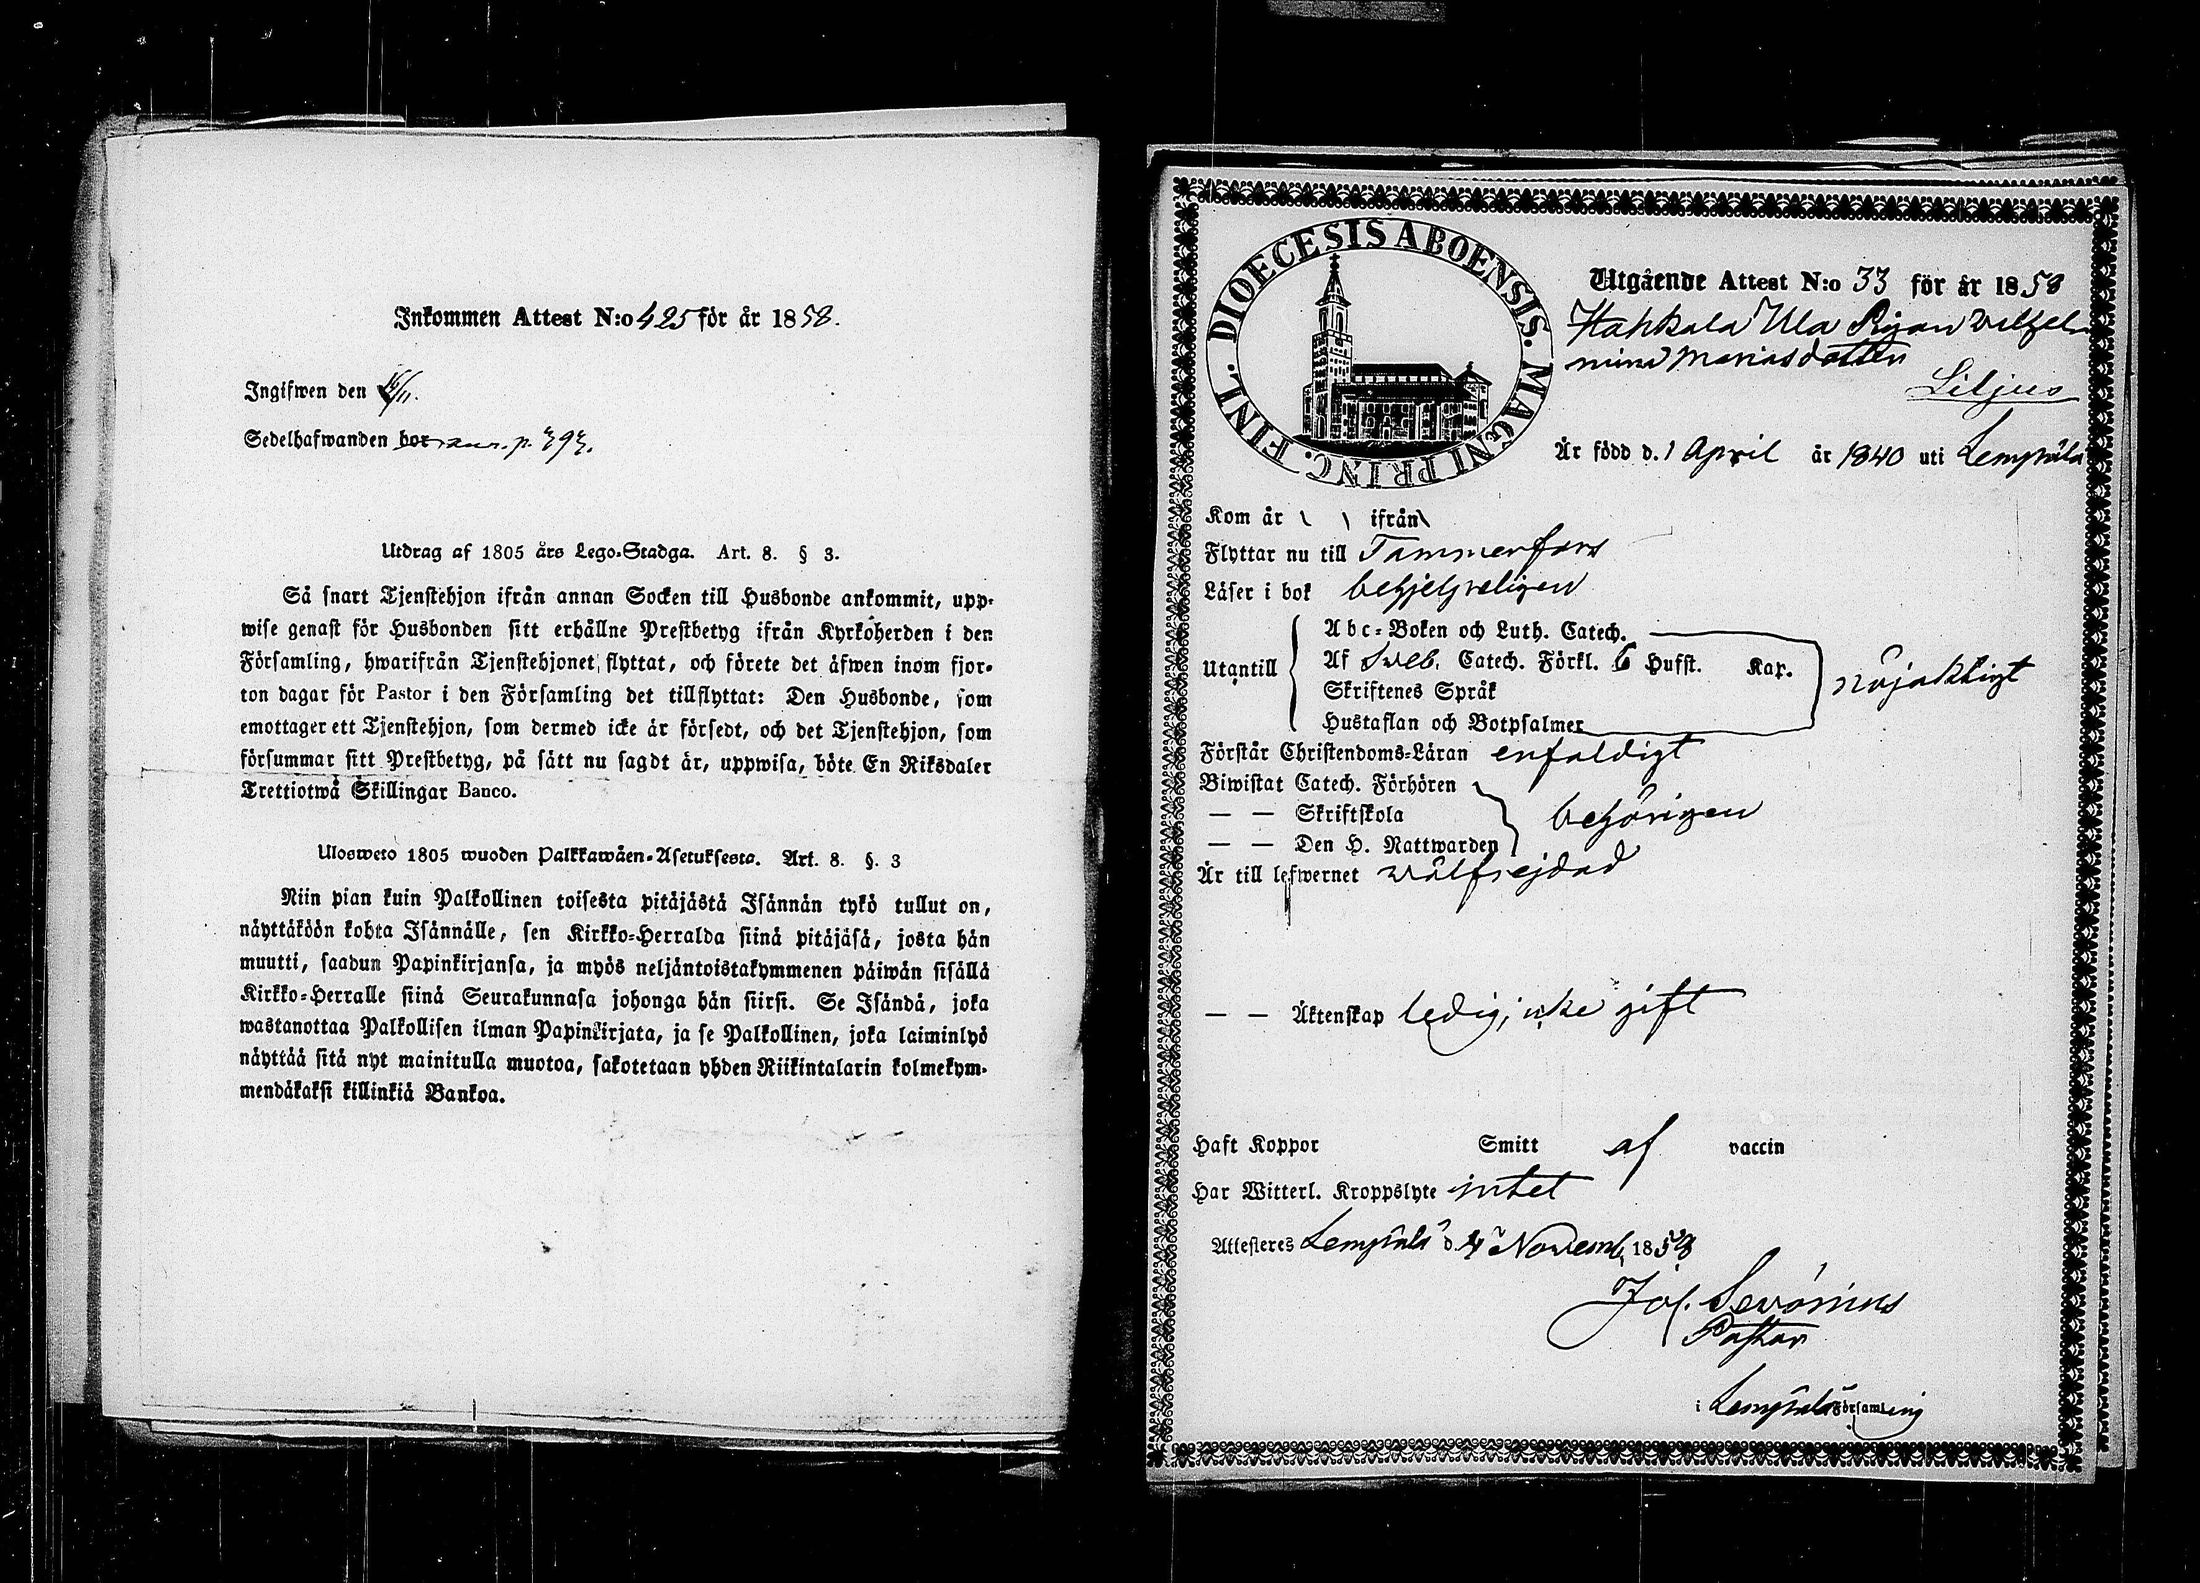 Inkommen Attest N:o 425 för år 1858.
Ingifwen den /11.
Sedelhafwanden bor p. 393.
Utdrag af 1805 års Lego-Stadga. Art. 8. § 3.
Så snart Tjenstehjon ifrån annan Socken till Husbonde ankommit, upp-
wise genast för Husbonden sitt erhållne Prestbetyg ifrån Kyrkoherden i den
Församling, hwarifrån Tjenstehjonet flyttat, och förete det äfwen inom fjor-
ton dagar för Pastor i den Församling det tillflyttat: Den Husbonde, som
emottager ett Tjenstehjon, som dermed icke är försedt, och det Tjenstehjon, som
försummar sitt Prestbetyg, på sätt nu sagdt är, uppwisa, böte En Riksdaler
Trettiotwå Skillingar Banco.
Ulosweto 1805 wuoden Palkkawäen-Asetuksesta. Art. 8. §. 3
Niin pian kuin Palkollinen toisesta pitäjästä Isännän tykö tullut on,
näyttäköön kohta Isännälle, sen Kirkko-Herralda siinä pitäjäsä, josta hän
muutti, saadun Papinkirjansa, ja myös neljäntoistakymmenen päiwän sisällä
Kirkko-Herralle siinä Seurakunnasa johonga hän siirsi. Se Isändä, joka
wastanottaa Palkollisen ilman Papinkirjata, ja se Palkollinen, joka laiminlyö
näyttää sitä nyt mainitulla muotoa, sakotetaan yhden Riikintalarin kolmekym-
mendäkaksi killinkiä Bankoa.
DIOECESIS ABOENSIS. MAGNI PRINC. FINL.
Utgående Attest N:o 33 för år 1858
Hahkala Ula Pigan Wilhel
mina Mariasdotter
Liljus
Är född d. 1 April år 1840 uti Lempälä
Kom år ifrån
Flyttar nu till Tammerfors
Läser i bok behjelpeligen
Utantill
Abc-Boken och Luth. Catech.
Af Sveb. Catech. Förkl. 6 Hufst. Kap.
Skriftenes Språk
Hustaflan och Botpsalmer
nöjaktigt
Förstår Christendoms-Läran enfaldigt
Biwistat Catech. Förhören
— — Skriftskola
— — Den H. Nattwarden
behörigen
Är till lefwernet wälfrejdad
— — Äktenskap ledig, icke gift
Haft Koppor Smitt af vaccin
Har Witterl. Kroppslyte intet
Attesteres Lempälä d. 4 Novemb. 1858
Pastor
i Lempälä Församling